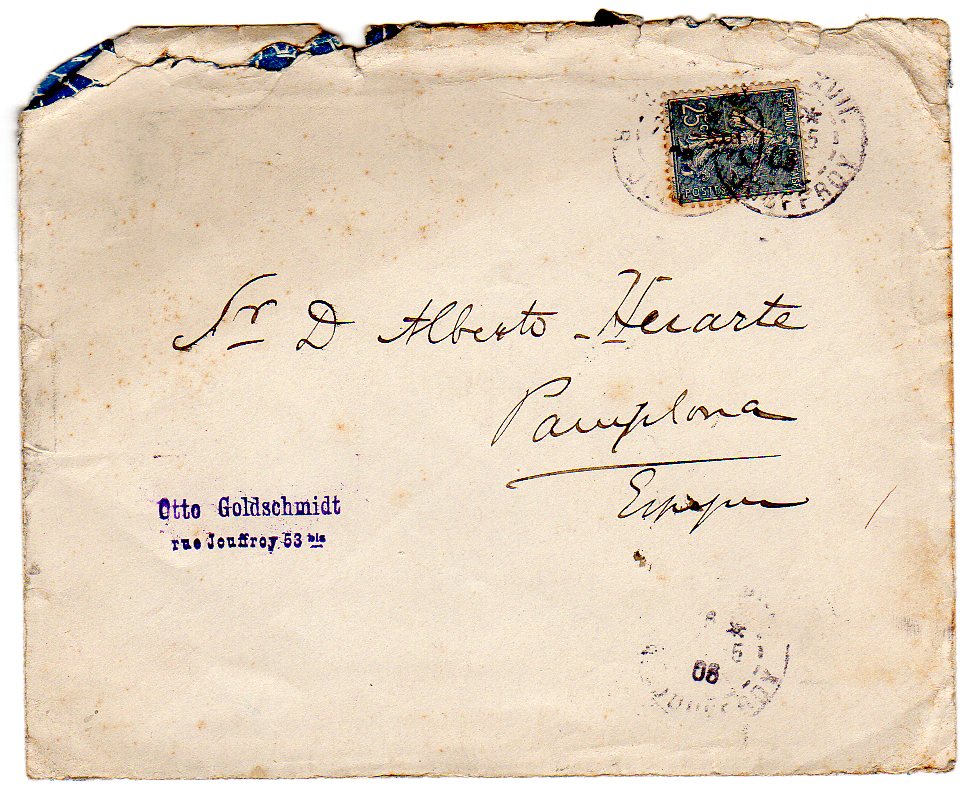 XVII.
* 5
08
JOUFFROY
25 c
REPUBLIQUE
POSTES
Sr D Alberto Huarte
Pamplona
Otto Goldschmidt
rue Jouffroy 53 bis
* 5
08
JOUFFROY